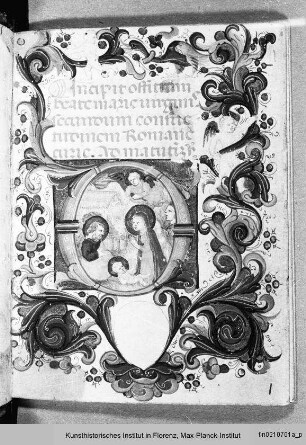 Incipit offitium
beate marie uirgini
secundum consue
tudinem Romane
curie. Ad matutin
1
Kunsthistorisches Institut in Florenz, Max Planck Institut
fln0510751a_p